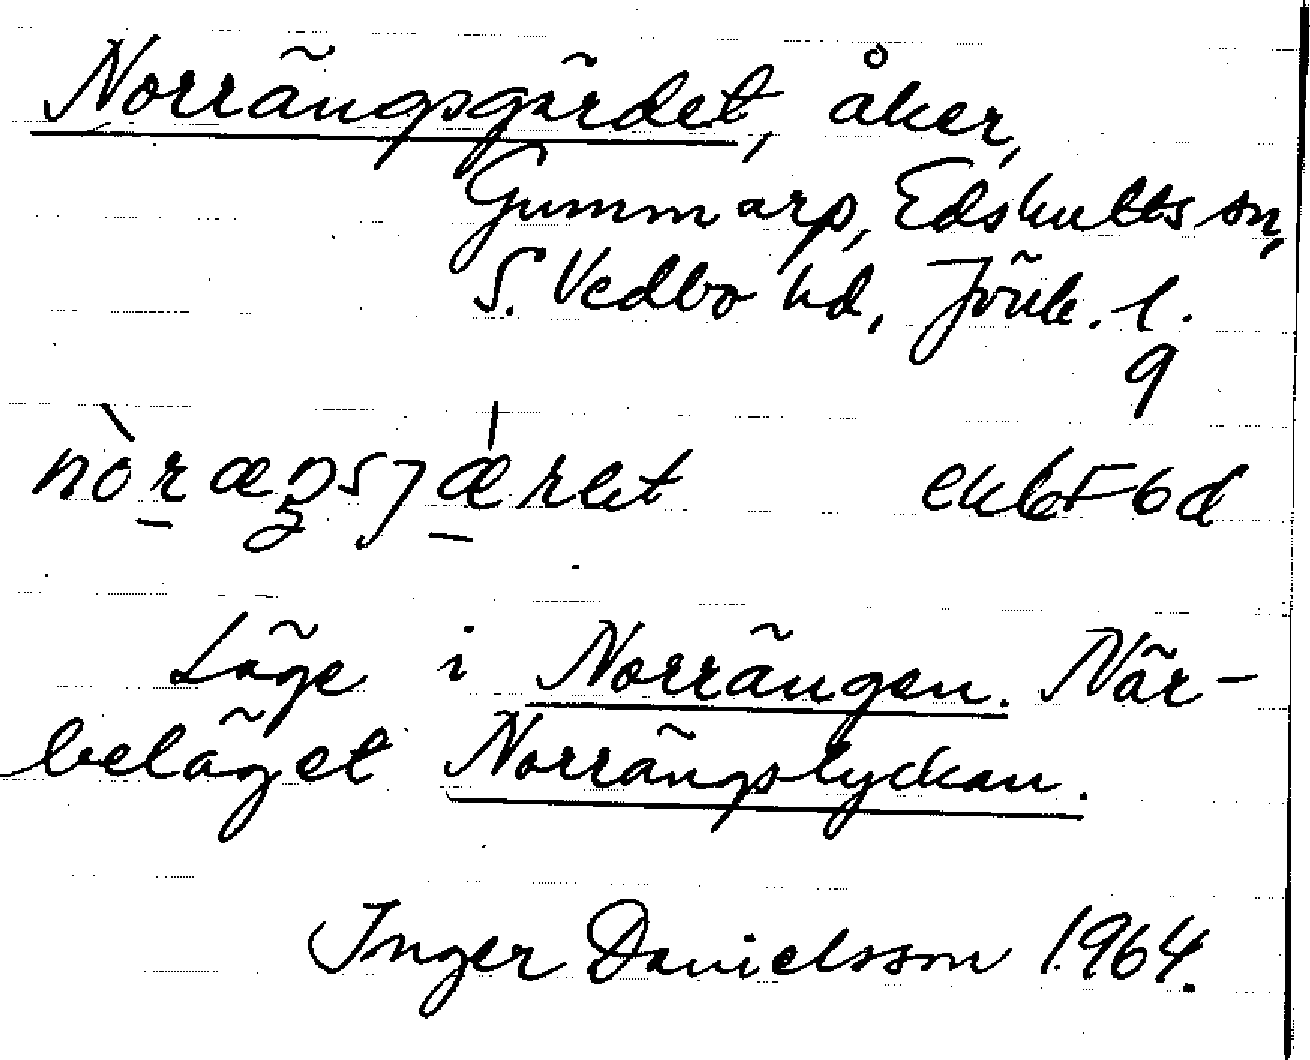 Norrängsgärdet, åker,
Gummarp, Edshults sn,
S. Vedbo hd, Jönk. l.
9
Läge i Norrängen. När-
beläget Norrängslyckan.
Inger Danielsson 1964.